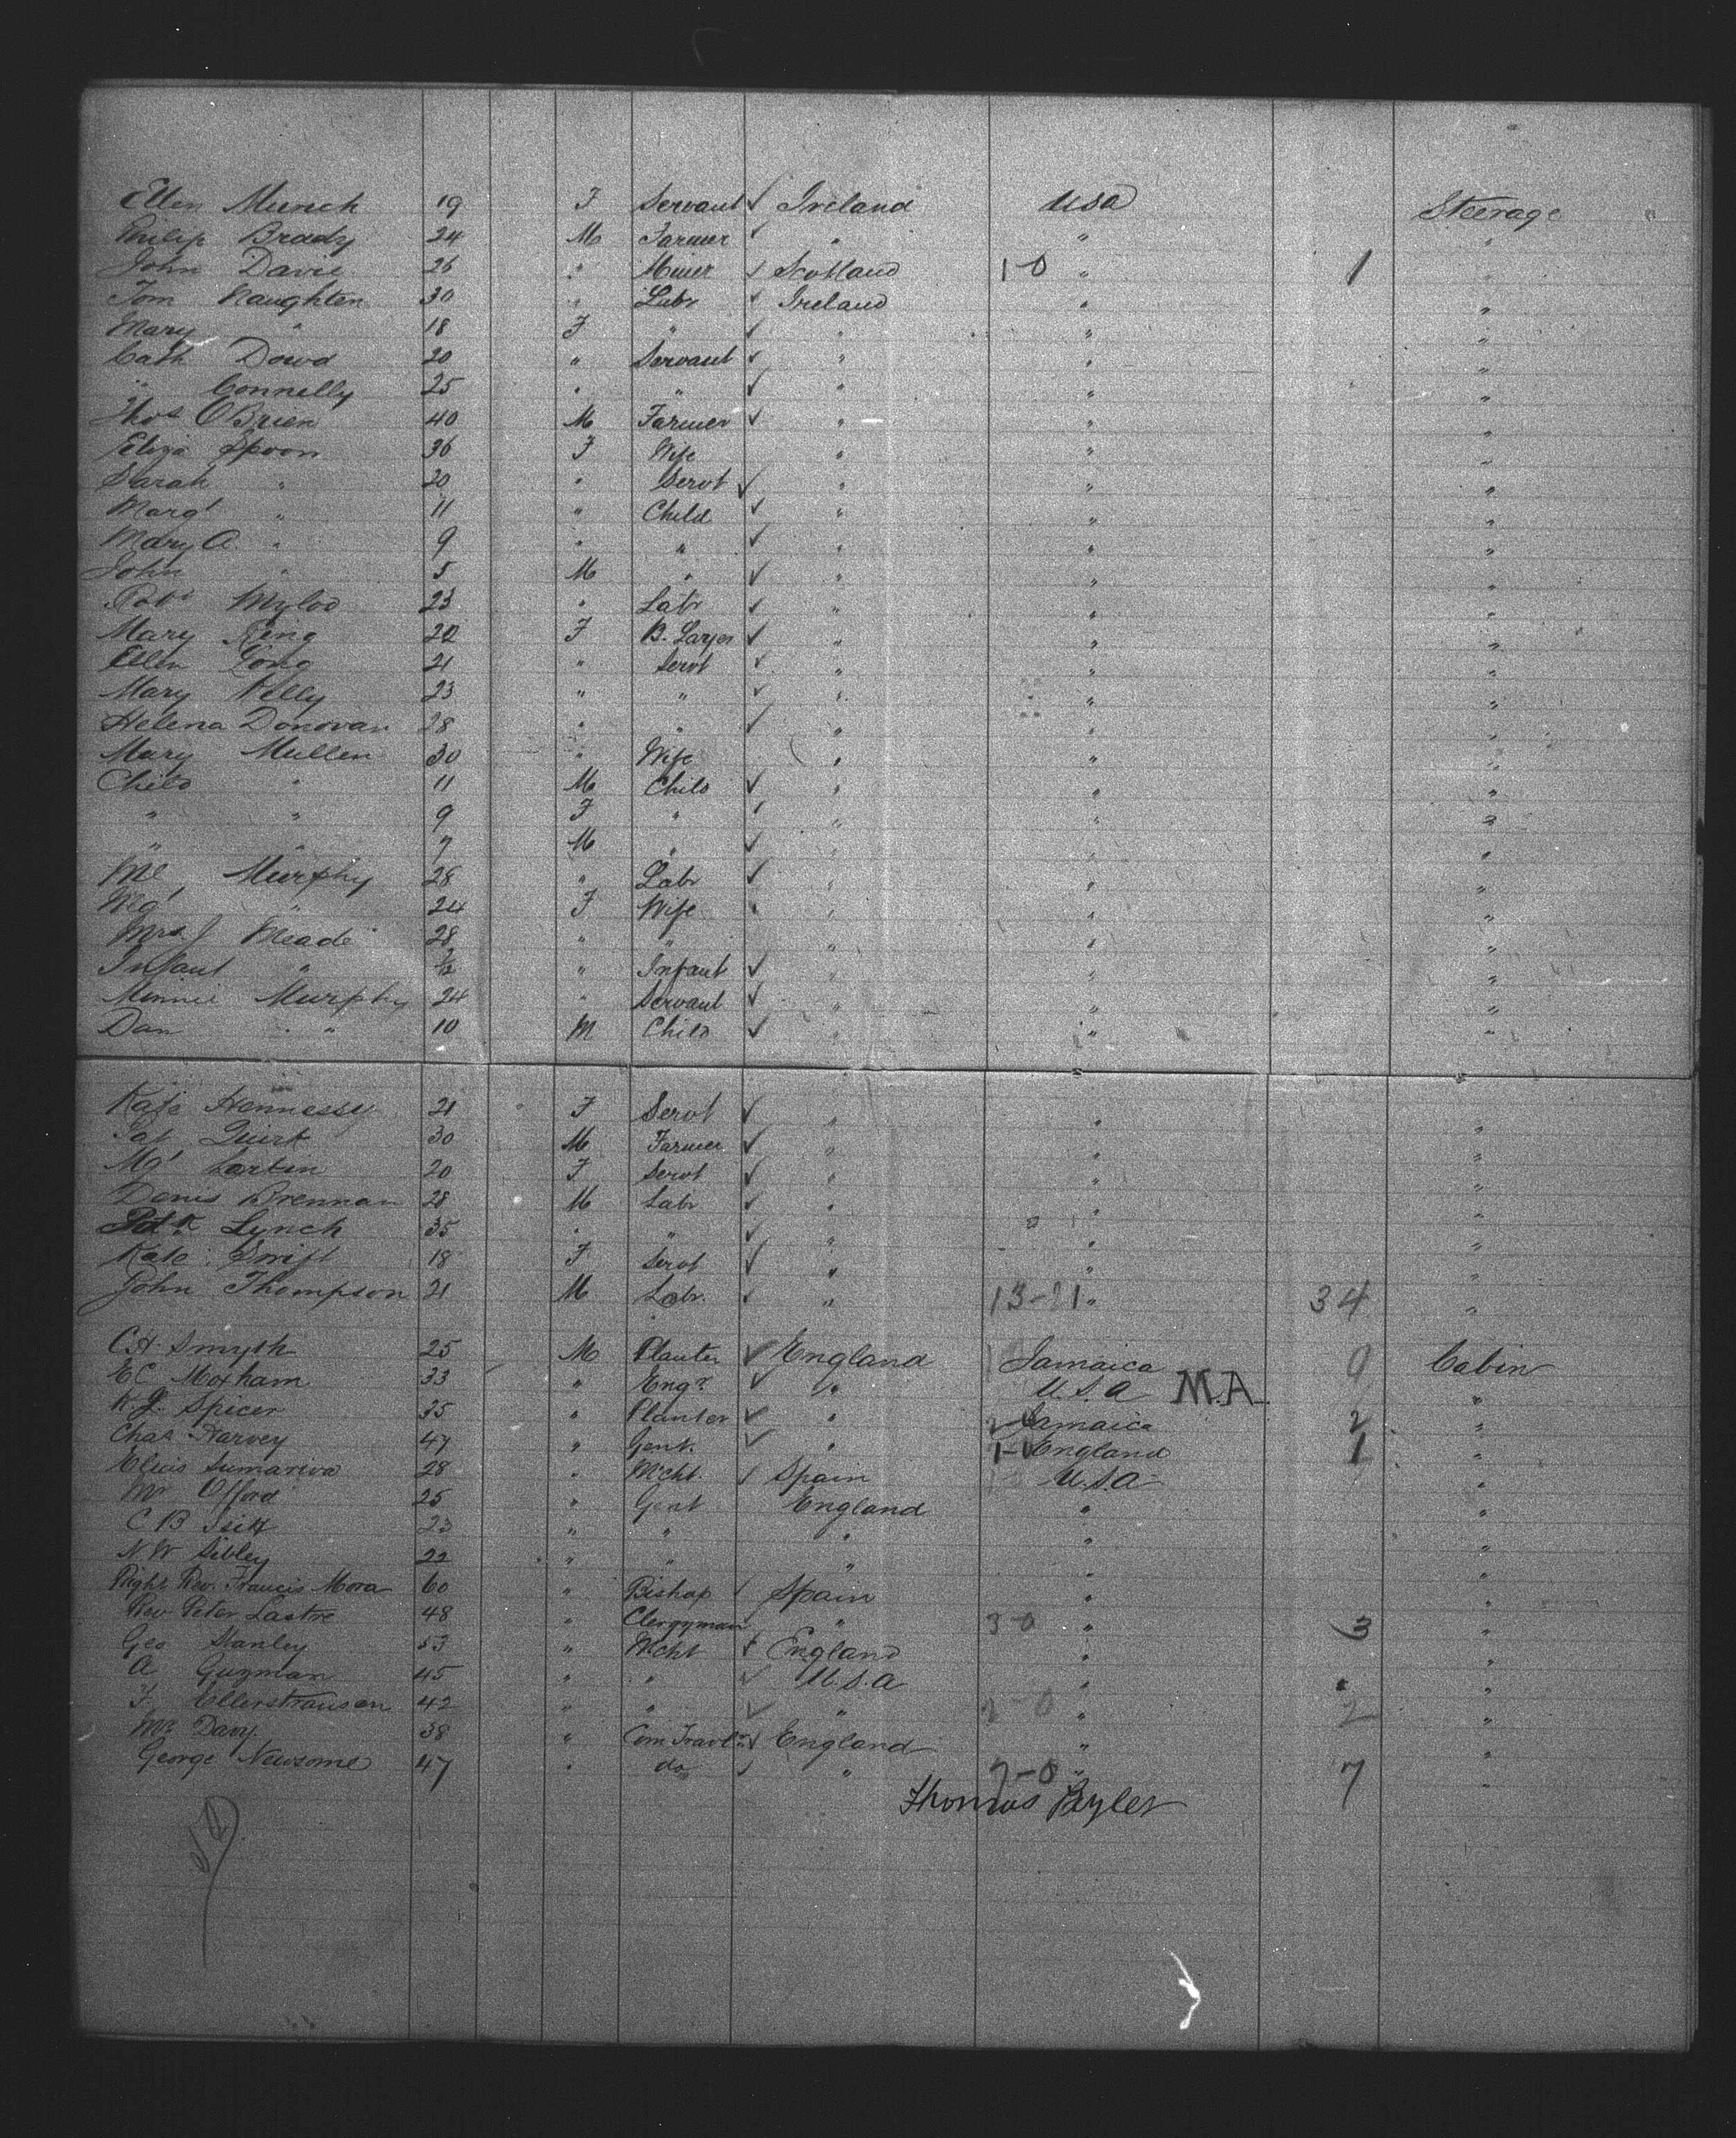 Ellen Munch 19 F Servant ✓ Ireland USA Steerage
Philip Brady 24 M Farmer ✓ " " "
John Davie 26 " Miner ✓ Scotland 1-0 " 1 "
Tom Naughten 30 " Labr ✓ Ireland " "
Mary " 18 F " ✓ " " "
Cath Dowd 20 " Servant ✓ " " "
" Connelly 25 " " ✓ " " "
Thos O'Brien 40 M Farmer ✓ " " "
Eliza Spoon 36 F Wife " " "
Sarah " 20 " Servt ✓ " " "
Margt " 11 " Child ✓ " " "
Mary A. " 9 " " ✓ " " "
John " 5 M " ✓ " " "
Mylod 23 " Labr ✓ " " "
Mary King 22 F ✓ " " "
Ellen Long 21 " Servt ✓ " " "
Mary Kelly 23 " " ✓ " " "
Helena Donovan 28 " " ✓ " " "
Mary Mullen 30 " Wife " " "
Child " 11 M Child ✓ " " "
" " 9 F " ✓ " " "
" " 7 M " ✓ " " "
Ml Murphy 28 " Labr ✓ " " "
Mgt " 24 F Wife " " "
Mrs J Meade 28 " " " " "
Infant " " Infant ✓ " " "
Minnie Murphy 24 " Servant ✓ " " "
Dan " 10 M Child ✓ " " "
Kate Hennessy 21 F Servt ✓ " " "
Pat Quirk 30 M Farmer ✓ " " "
Mgt Larkin 20 F Servt ✓ " " "
Denis Brennan 28 M Labr ✓ " " "
Patk Lynch 35 " " ✓ " " "
Kate Swift 18 F Servt ✓ " " "
John Thompson 21 M Labr. ✓ " 13-21 " 34 "
C.H. Smyth 25 M Planter ✓ England Jamaica 0 Cabin
E C Moxham 33 " Engr ✓ " U.S.A M.A. "
K.J. Spicer 35 " Planter ✓ " Jamaica 2 "
Chas Harvey 47 " Gent. ✓ " 1-0 England 1 "
Elicio Sumariva 28 " Mcht. ✓ Spain U.S.A "
Mr Offord 25 " Gent England " "
C B Isitt 23 " " " " "
N.W Sibley 22 " " " " "
Right Rev. Francis Mora 60 " Bishop ✓ Spain " "
Rev Peter Lastre 48 " Clergyman " 3-0 " 3 "
Geo Stanley 53 " Mcht ✓ England " "
A Guzman 45 " " ✓ U.S.A " "
F. Ellerstrausen 42 " " ✓ " 2-0 " 2 "
Mr Davy 38 " Com Travlr ✓ England " "
George Newsome 47 " do ✓ " 7-0 " 7 "
Thomas